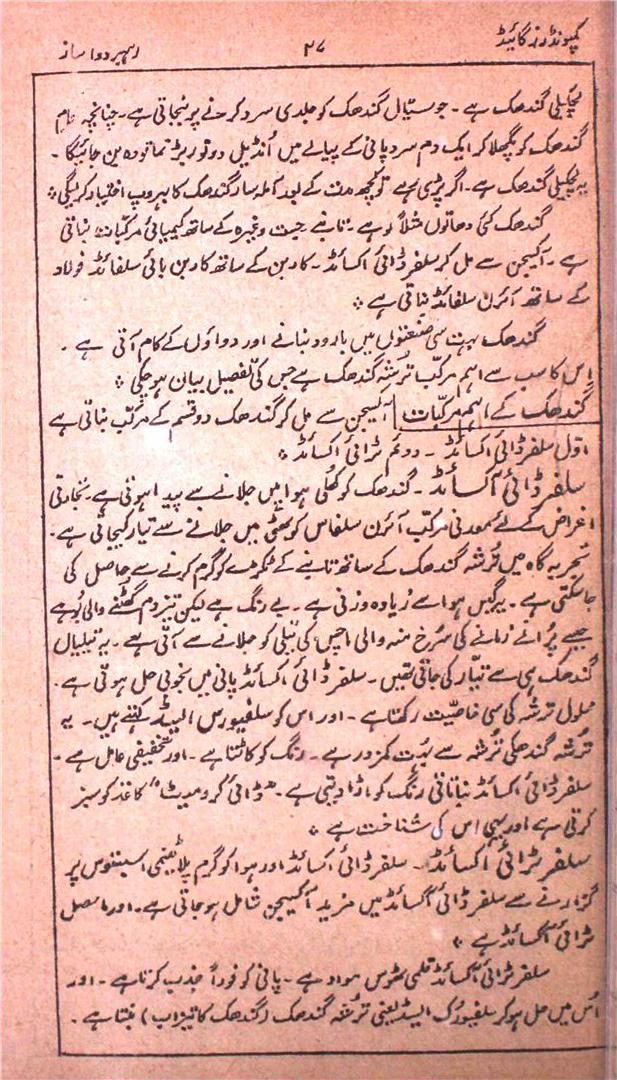 کمپونڈرز گائیڈ ۲۷ رہبر دوا ساز
لچکیلی گندھک ہے۔ جو سیال گندھک کو جلدی سرد کرنے پر بنجاتی ہے۔ چنانچہ عام
گندھک کو پگھلا کر ایک دم سرد پانی کے پیالے میں اُنڈیل دو تو ربڑ نما تودہ بن جائیگا۔
یہ لچکیلی گندھک ہے۔ اگر پڑی رہے تو کچھ مدت کے بعد قلمدار گندھک کا بہروپ اختیار کرلیگی ÷
گندھک کئی دھاتوں مثلاً لوہے۔ تانبے جست وغیرہ کے ساتھ کیمیائی مرکبات بناتی
ہے۔ آکسیجن سے مل کر سلفر ڈائی اکسائڈ۔ کاربن کے ساتھ کاربن بائی سلفائڈ فولاد
کے ساتھ آئرن سلفائڈ بناتی ہے ÷
گندھک بہت سی صنعتوں میں بارود بنانے اور دواؤں کے کام آتی ہے۔
اِس کا سب سے اہم مرکب تُرشہ گندھک ہے جس کی تفصیل بیان ہوچکی ÷
گندھک کے اہم مرکبات آکسیجن سے مل کر گندھک دو قسم کے مرکب بناتی ہے
اوّل سلفر ڈائی اکسائڈ۔ دوئم ٹرائی اکسائڈ ÷
سلفر ڈائی آکسائڈ۔ گندھک کو کھُلی ہوا میں جلانے سے پیدا ہوتی ہے۔ تجارتی
اغراض کے لئے معدنی مرکب آئرن سلفاس کو بھٹی میں جلانے سے تیار کیجاتی ہے۔
تجربہ گاہ میں تُرشہ گندھک کے ساتھ تانبے کے ٹکڑے کو گرم کرنے سے حاصل کی
جاسکتی ہے۔ یہ گیس ہوا سے زیادہ وزنی ہے۔ بے رنگ ہے لیکن تیز دم گھٹنے والی بُو ہے
جیسے پُرانے زمانے کی سُرخ منہ والی ماچس کی تیلی کو جلانے سے آتی ہے۔ یہ تیلیاں
گندھک ہی سے تیّار کی جاتی تھیں۔ سلفر ڈائی اکسائڈ پانی میں بخوبی حل ہوتی ہے۔
محلول ترشہ کی سی خاصیّت رکھتا ہے۔ اور اس کو سلفیورس ایسڈ کہتے ہیں۔ یہ
تُرشہ گندھکی تُرشہ سے بہُت کمزور ہے۔ رنگ کو کاٹتا ہے۔ اور تخفیفی عامل ہے۔
سلفر ڈائی اکسائڈ نباتاتی رنگ کو اڑا دیتی ہے۔ "ڈائی کرومیٹ" کاغذ کو سبز
کرتی ہے اور یہی اس کی شناخت ہے ÷
سلفر ٹرائی آکسائڈ۔ سلفر ڈائی اکسائڈ اور ہوا کو گرم پلاٹینمی اسبنٹوس پر
گزارنے سے سلفر ڈائی آکسائڈ میں مزید آکسیجن شامل ہوجاتی ہے۔ اور ماحصل
ٹرائی آکسائڈ ہے ÷
سلفر ٹرائی آکسائڈ قلمی ٹھوس مواد ہے۔ پانی کو فوراً جذب کرتا ہے۔ اور
اُس میں حل ہو کر سلفیورک ایسڈ یعنی ترشہ گندھک (گندھک کا تیزاب) بنتا ہے۔